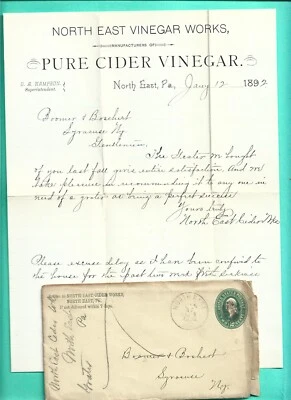 NORTH EAST VINEGAR WORKS,
MANUFACTURERS OF
PURE CIDER VINEGAR.
Superintendent.
North East, Pa., Jany 12 1892
Boomer & Boschert
Syracuse Ny
Gentlemen,
The Grater we bought
of you last fall gives entire satisfaction. And we
take pleasure in recommending it to any one in
need of a grater as being a perfect success
Yours truly
North East Cider Wks
Please excuse delay as I have been confined to
the house for the past two
NORTH EAST CIDER WORKS,
NORTH EAST, PA.
If not delivered within 5 days.
North East Cider
North East
Pa
Grater
Boomer & Boschert
Syracuse
Ny.